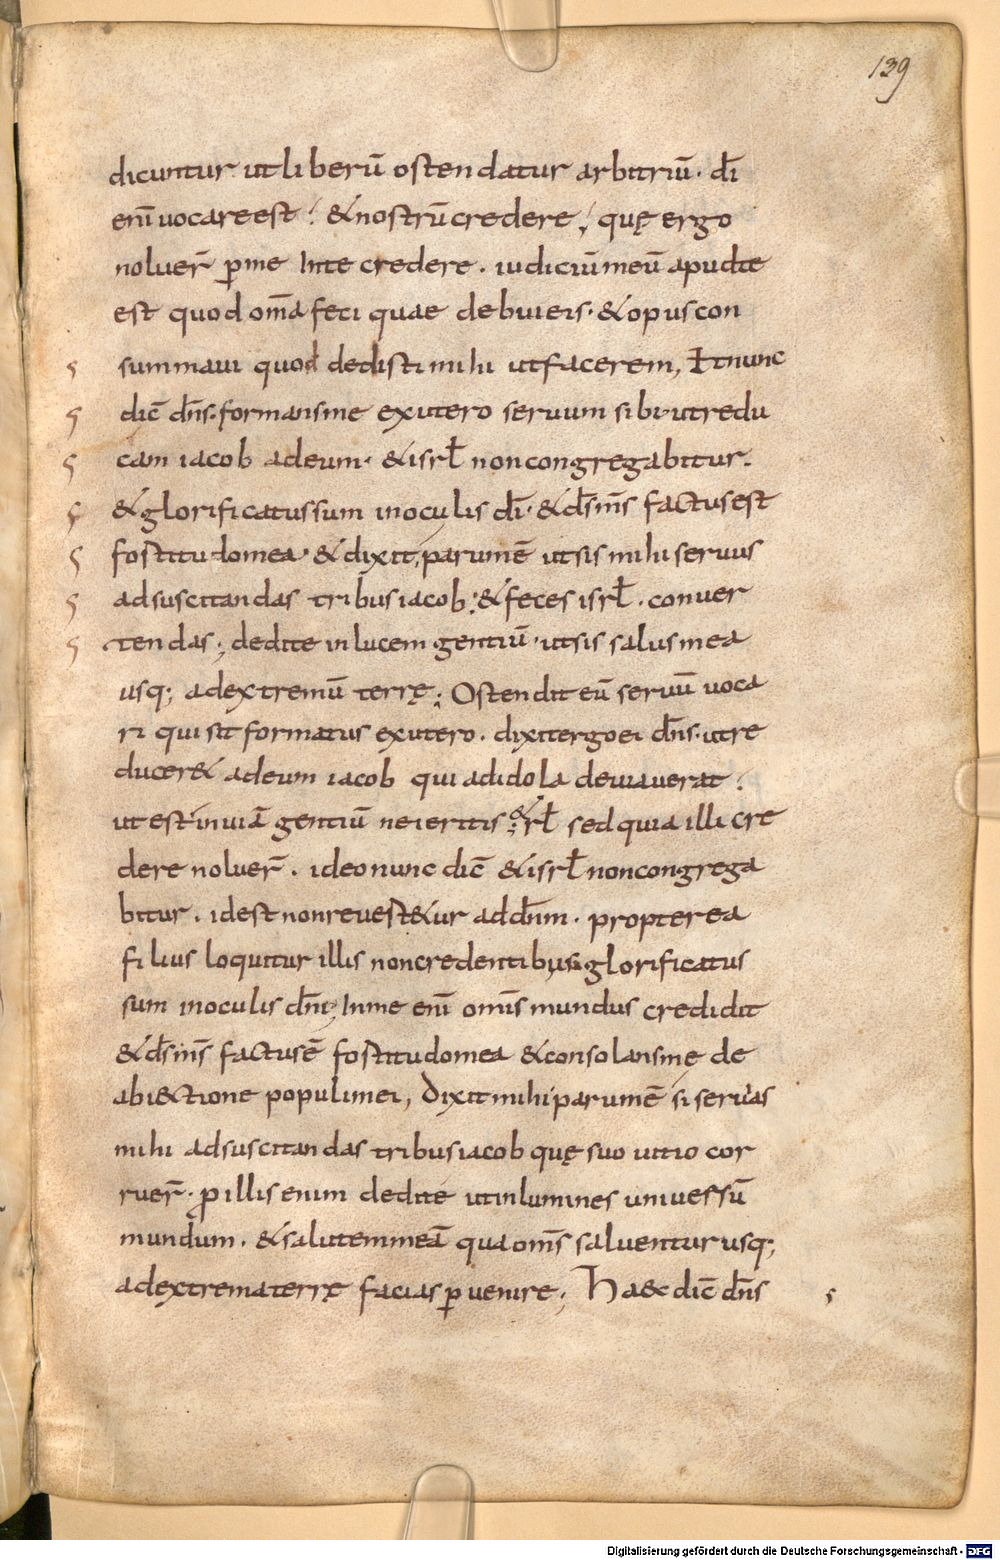 139
dicuntur ut liberū ostendatur arbitriū. dī
enī uocare est; & nostrū credere; quę ergo
noluer̄ ꝑ me In te credere. iudiciū meū apud te
est quod om̄a feci quae debui eis. & opus con
summaui quod dedisti mihi ut facerem, Et nunc
dic̄ dn̄s. formans me ex utero seruum sibi. ut redu
cam iacob ad eum. & isrł non congregabitur.
& glorificatus sum in oculis dn̄i. & d̄s m̄s factus est
fostitudo mea. & dixit, parum ē ut sis mihi seruus
ad suscitandas tribus iacob; & feces isrł. conuer
tendas; dedi te in lucem gentiū. ut sis salus mea
usq; ad extremū terrę; Ostendit eū seruū uoca
ri qui sit formatus ex utero. dixit ergo ei dn̄s. ut re
ducer& ad eum iacob qui ad idola deuiauerat;
ut est in uiā gentiū ne ieritis & isrł sed quia illi cre
dere noluer̄. ideo nunc dic̄ & isrł non congrega
bitur. id est non reuest&ur ad dn̄m. propterea
filius loquitur illis non credentibus; glorificatus
sum in oculis dn̄i; In me enī om̄s mundus credidit
& d̄s m̄s factus ē fostitudo mea & consolans me de
abi&ctione populi mei, Dixit mihi parum ē si seruias
mihi ad suscitandas tribus iacob quę suo uitio cor
ruer̄. ꝓ illis enim dedi te ut inlumines uniuersū
mundum. & salutem meā qua om̄s saluentur usq;
ad extrema terrę facias ꝑuenire; Ha&c dic̄ dn̄s
Digitalisierung gefördert durch die Deutsche Forschungsgemeinschaft - DFG